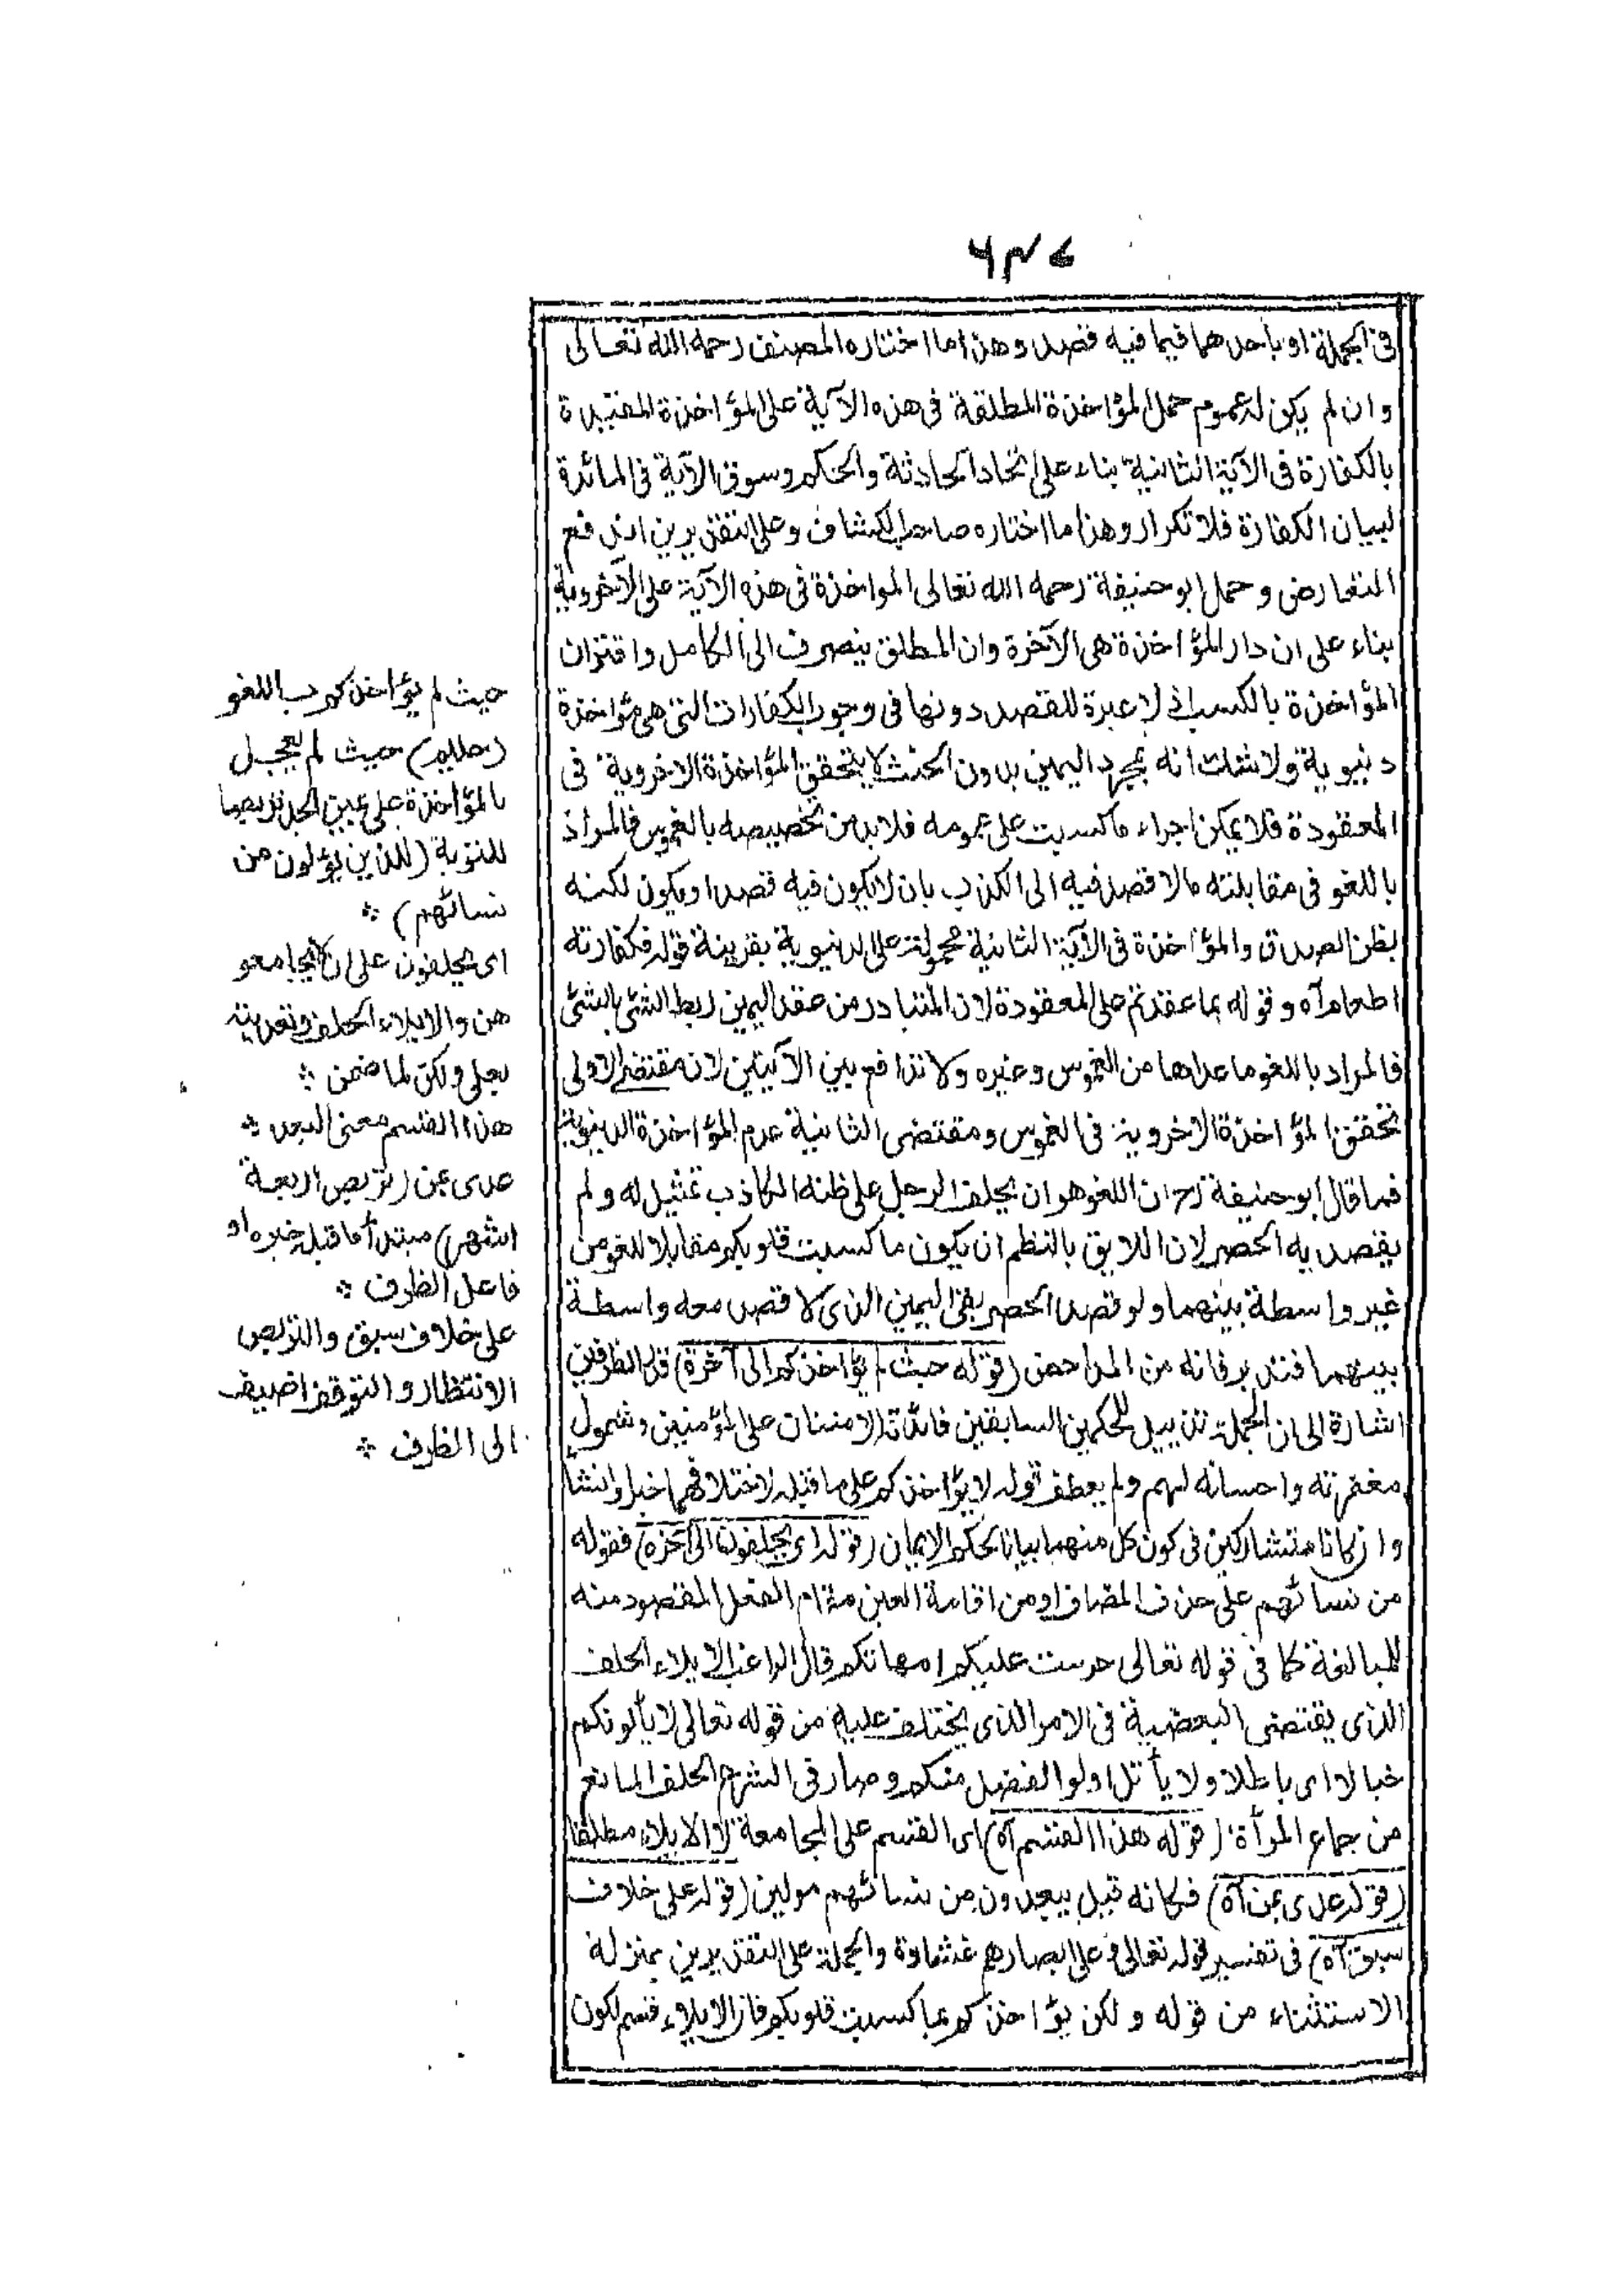 ٦٣٤
فى الجملة او باحدهما فيما فيه قصد وهذا ما اختاره المصنف رحمه الله تعالى
وان لم يكن له عموم حمل المؤاخذة المطلقة فى هذه الآية على المؤاخذة المقيدة
بالكفارة فى الآية الثانية بناء على اتحاد الحادثة والحكم وسوق الآية فى المائدة
لبيان الكفارة فلا تكرار وهذا ما اختاره صاحب الكشاف وعلى التقديرين اندفع
التعارض وحمل ابو حنيفة رحمه الله تعالى المواخذة فى هذه الآية على الآخروية
بناء على ان دار المؤاخذة هى الآخرة وان المطلق ينصرف الى الكامل واقتران
المؤاخذة بالكسب اذ لا عبرة للقصد دونها فى وجوب الكفارات التى هى مؤاخذة
دنيوية ولا شك انه بمجرد اليمين بدون الحنث لا يتحقق المؤاخذة الاخروية فى
المعقودة فلا يمكن اجراء ما كسبت على عمومه فلا بد من تخصيصه بالغموس فالمراد
باللغو فى مقابلته ما لا قصد فيه الى الكذب بان لا يكون فيه قصد او يكون لكنه
بظن الصدق والمؤاخذة فى الآية الثانية محمولة على الدنيوية بقرينة قوله فكفارته
اطعام آه وقوله بما عقدتم على المعقودة لان المتبادر من عقد اليمين ربط الشئ بالشئ
فالمراد باللغو ما عداها من الغموس وغيره ولا تدافع بين الآيتين لان مقتضى الاولى
تحقق المؤاخذة الاخروية فى الغموس ومقتضى الثانية عدم المؤاخذة الدنيوية
فما قال ابو حنيفة رح ان اللغو هو ان يحلف الرجل على ظنه الكاذب تمثيل له ولم
يقصد به الحصر لان اللايق بالنظم ان يكون ما كسبت قلوبكم مقابلا للغو من
غير واسطة بينهما ولو قصد الحصر بقى اليمين الذى لا قصد معه واسطة
بينهما فتدبر فانه من المداحض (قوله حيث لم يؤاخذكم الى آخرة) قدر الظرفين
اشارة الى ان الجملة تذييل للحكمين السابقين فائدته الامتنان على المؤمنين وشمول
مغفرته واحسانه لهم ولم يعطف قوله لا يؤاخذكم على ما قبله لاختلافهما خبرا وانشأ
وان كانا متشاركين فى كون كل منهما بيانا لحكم الايمان (قوله اى يحلفون الى آخره) فقوله
من نسائهم على حذف المضاف او من اقامة العين مقام الفعل المقصود منه
للمبالغة كما فى قوله تعالى حرمت عليكم امهاتكم قال الراغب الايلاء الحلف
الذى يقتضى البعضية فى الامر الذى يختلف عليه من قوله تعالى لا يألونكم
خبالا اى باطلا ولا يأتل اولوا الفضل منكم وصار فى الشرع الحلف المانع
من جماع المرأة (قوله هذا القسم آه) اى القسم على المجامعة لا الايلاء مطلقا
(قوله عدى بمن آه) فكانه قيل يبعدون من نسائهم مولين (قوله على خلاف
سبق آه) فى تفسير قوله تعالى وعلى ابصارهم غشاوة والجملة على التقديرين بمنزلة
الاستثناء من قوله ولكن يؤاخذكم بما كسبت قلوبكم فان الايلاء قسم لكون
حيث لم يؤاخذكم باللغو
(حليم) حيث لم يعجل
بالمؤاخذة على يمين الجد تربصا
للتوبة (للذين يؤلون من
نسائهم) ∴
اى يحلفون على ان لا يجامعو
هن والايلاء الحلف وتعديته
بعلى ولكن لما ضمن ∴
هذا القسم معنى البعد ∴
عدى بمن (تربص اربعة
اشهر) مبتدأ ما قبله خبره او
فاعل الظرف ∴
على خلاف سبق والتربص
الانتظار والتوقف اضيف
الى الظرف ∴